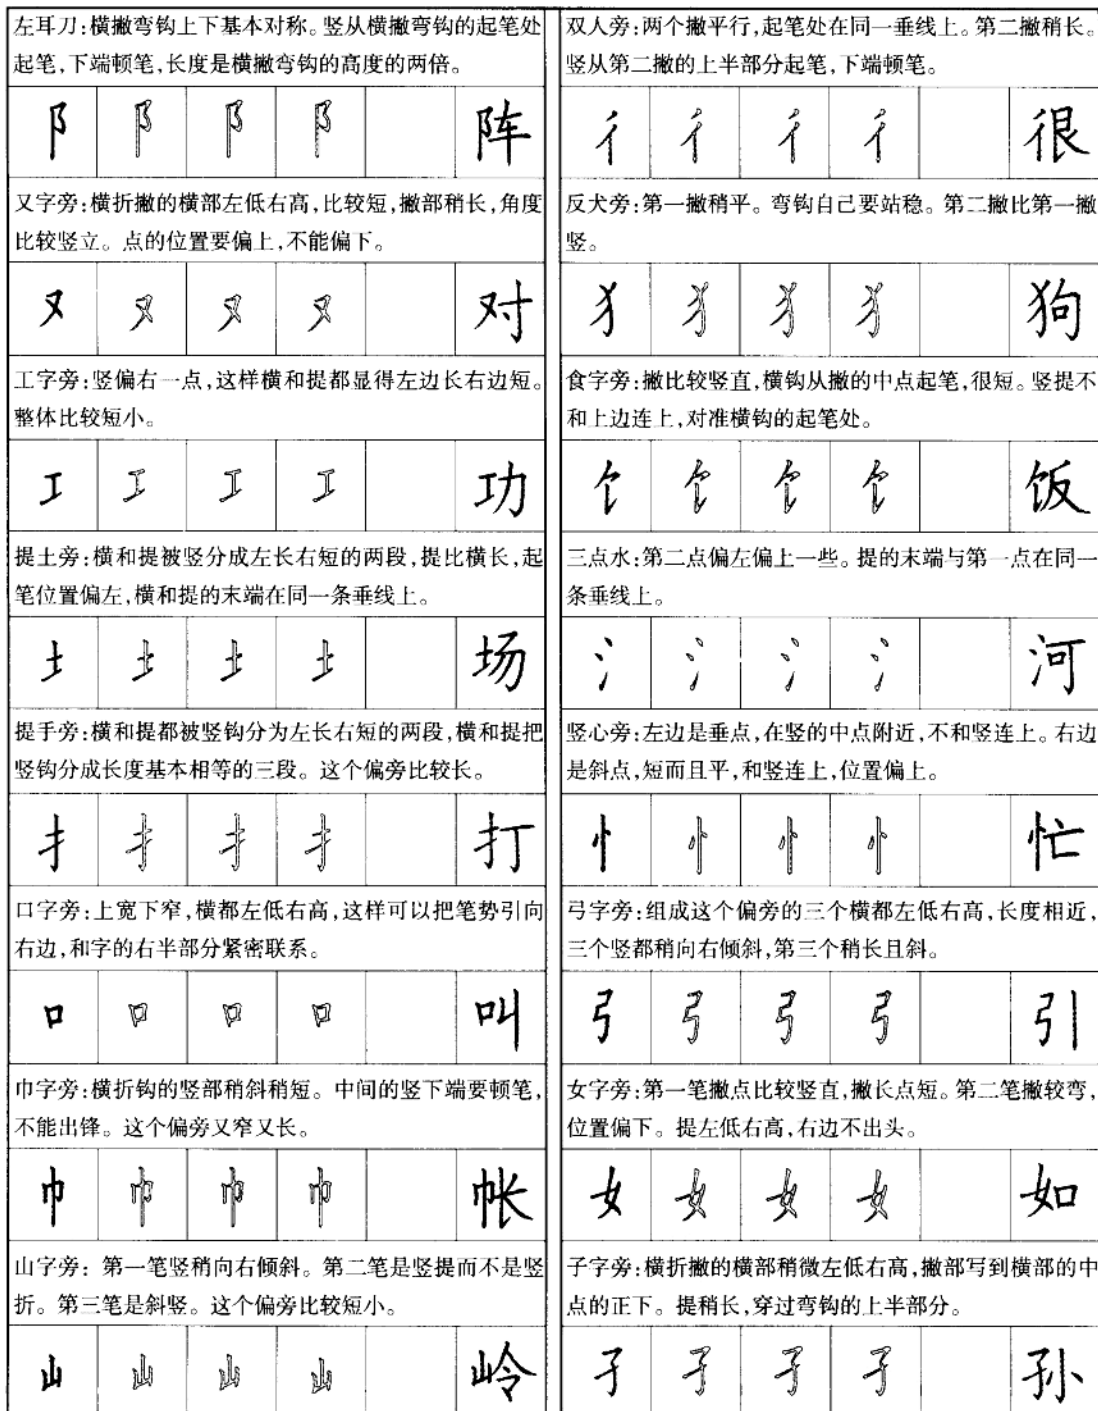 左耳刀:横撇弯钩上下基本对称。竖从横撇弯钩的起笔处
起笔,下端顿笔,长度是横撇弯钩的高度的两倍。
阝 阝 阝 阝 阵
又字旁:横折撇的横部左低右高,比较短,撇部稍长,角度
比较竖立。点的位置要偏上,不能偏下。
又 又 又 又 对
工字旁:竖偏右一点,这样横和提都显得左边长右边短。
整体比较短小。
工 工 工 工 功
提土旁:横和提被竖分成左长右短的两段,提比横长,起
笔位置偏左,横和提的末端在同一条垂线上。
土 土 土 土 场
提手旁:横和提都被竖钩分为左长右短的两段,横和提把
竖钩分成长度基本相等的三段。这个偏旁比较长。
扌 扌 扌 扌 打
口字旁:上宽下窄,横都左低右高,这样可以把笔势引向
右边,和字的右半部分紧密联系。
口 口 口 口 叫
巾字旁:横折钩的竖部稍斜稍短。中间的竖下端要顿笔,
不能出锋。这个偏旁又窄又长。
巾 巾 巾 巾 帐
山字旁:第一笔竖稍向右倾斜。第二笔是竖提而不是竖
折。第三笔是斜竖。这个偏旁比较短小。
山 山 山 山 岭
双人旁:两个撇平行,起笔处在同一垂线上。第二撇稍长。
竖从第二撇的上半部分起笔,下端顿笔。
彳 彳 彳 彳 很
反犬旁:第一撇稍平。弯钩自己要站稳。第二撇比第一撇
竖。
犭 犭 犭 犭 狗
食字旁:撇比较竖直,横钩从撇的中点起笔,很短。竖提不
和上边连上,对准横钩的起笔处。
饣 饣 饣 饣 饭
三点水:第二点偏左偏上一些。提的末端与第一点在同一
条垂线上。
氵 氵 氵 氵 河
竖心旁:左边是垂点,在竖的中点附近,不和竖连上。右边
是斜点,短而且平,和竖连上,位置偏上。
忄 忄 忄 忄 忙
弓字旁:组成这个偏旁的三个横都左低右高,长度相近,
三个竖都稍向右倾斜,第三个稍长且斜。
弓 弓 弓 弓 引
女字旁:第一笔撇点比较竖直,撇长点短。第二笔撇较弯,
位置偏下。提左低右高,右边不出头。
女 女 女 女 如
子字旁:横折撇的横部稍微左低右高,撇部写到横部的中
点的正下。提稍长,穿过弯钩的上半部分。
子 子 子 子 孙